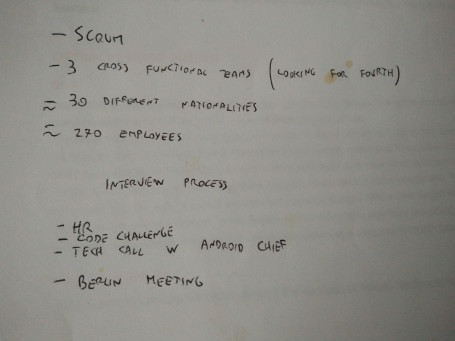 - SCRUM
- 3 CROSS FUNCTIONAL TEAMS (LOOKING FOR FOURTH)
≈ 30 DIFFERENT NATIONALITIES
≈ 270 EMPLOYEES
INTERVIEW PROCESS
- HR
- CODE CHALLENGE
- TECH CALL W ANDROID CHIEF
- BERLIN MEETING